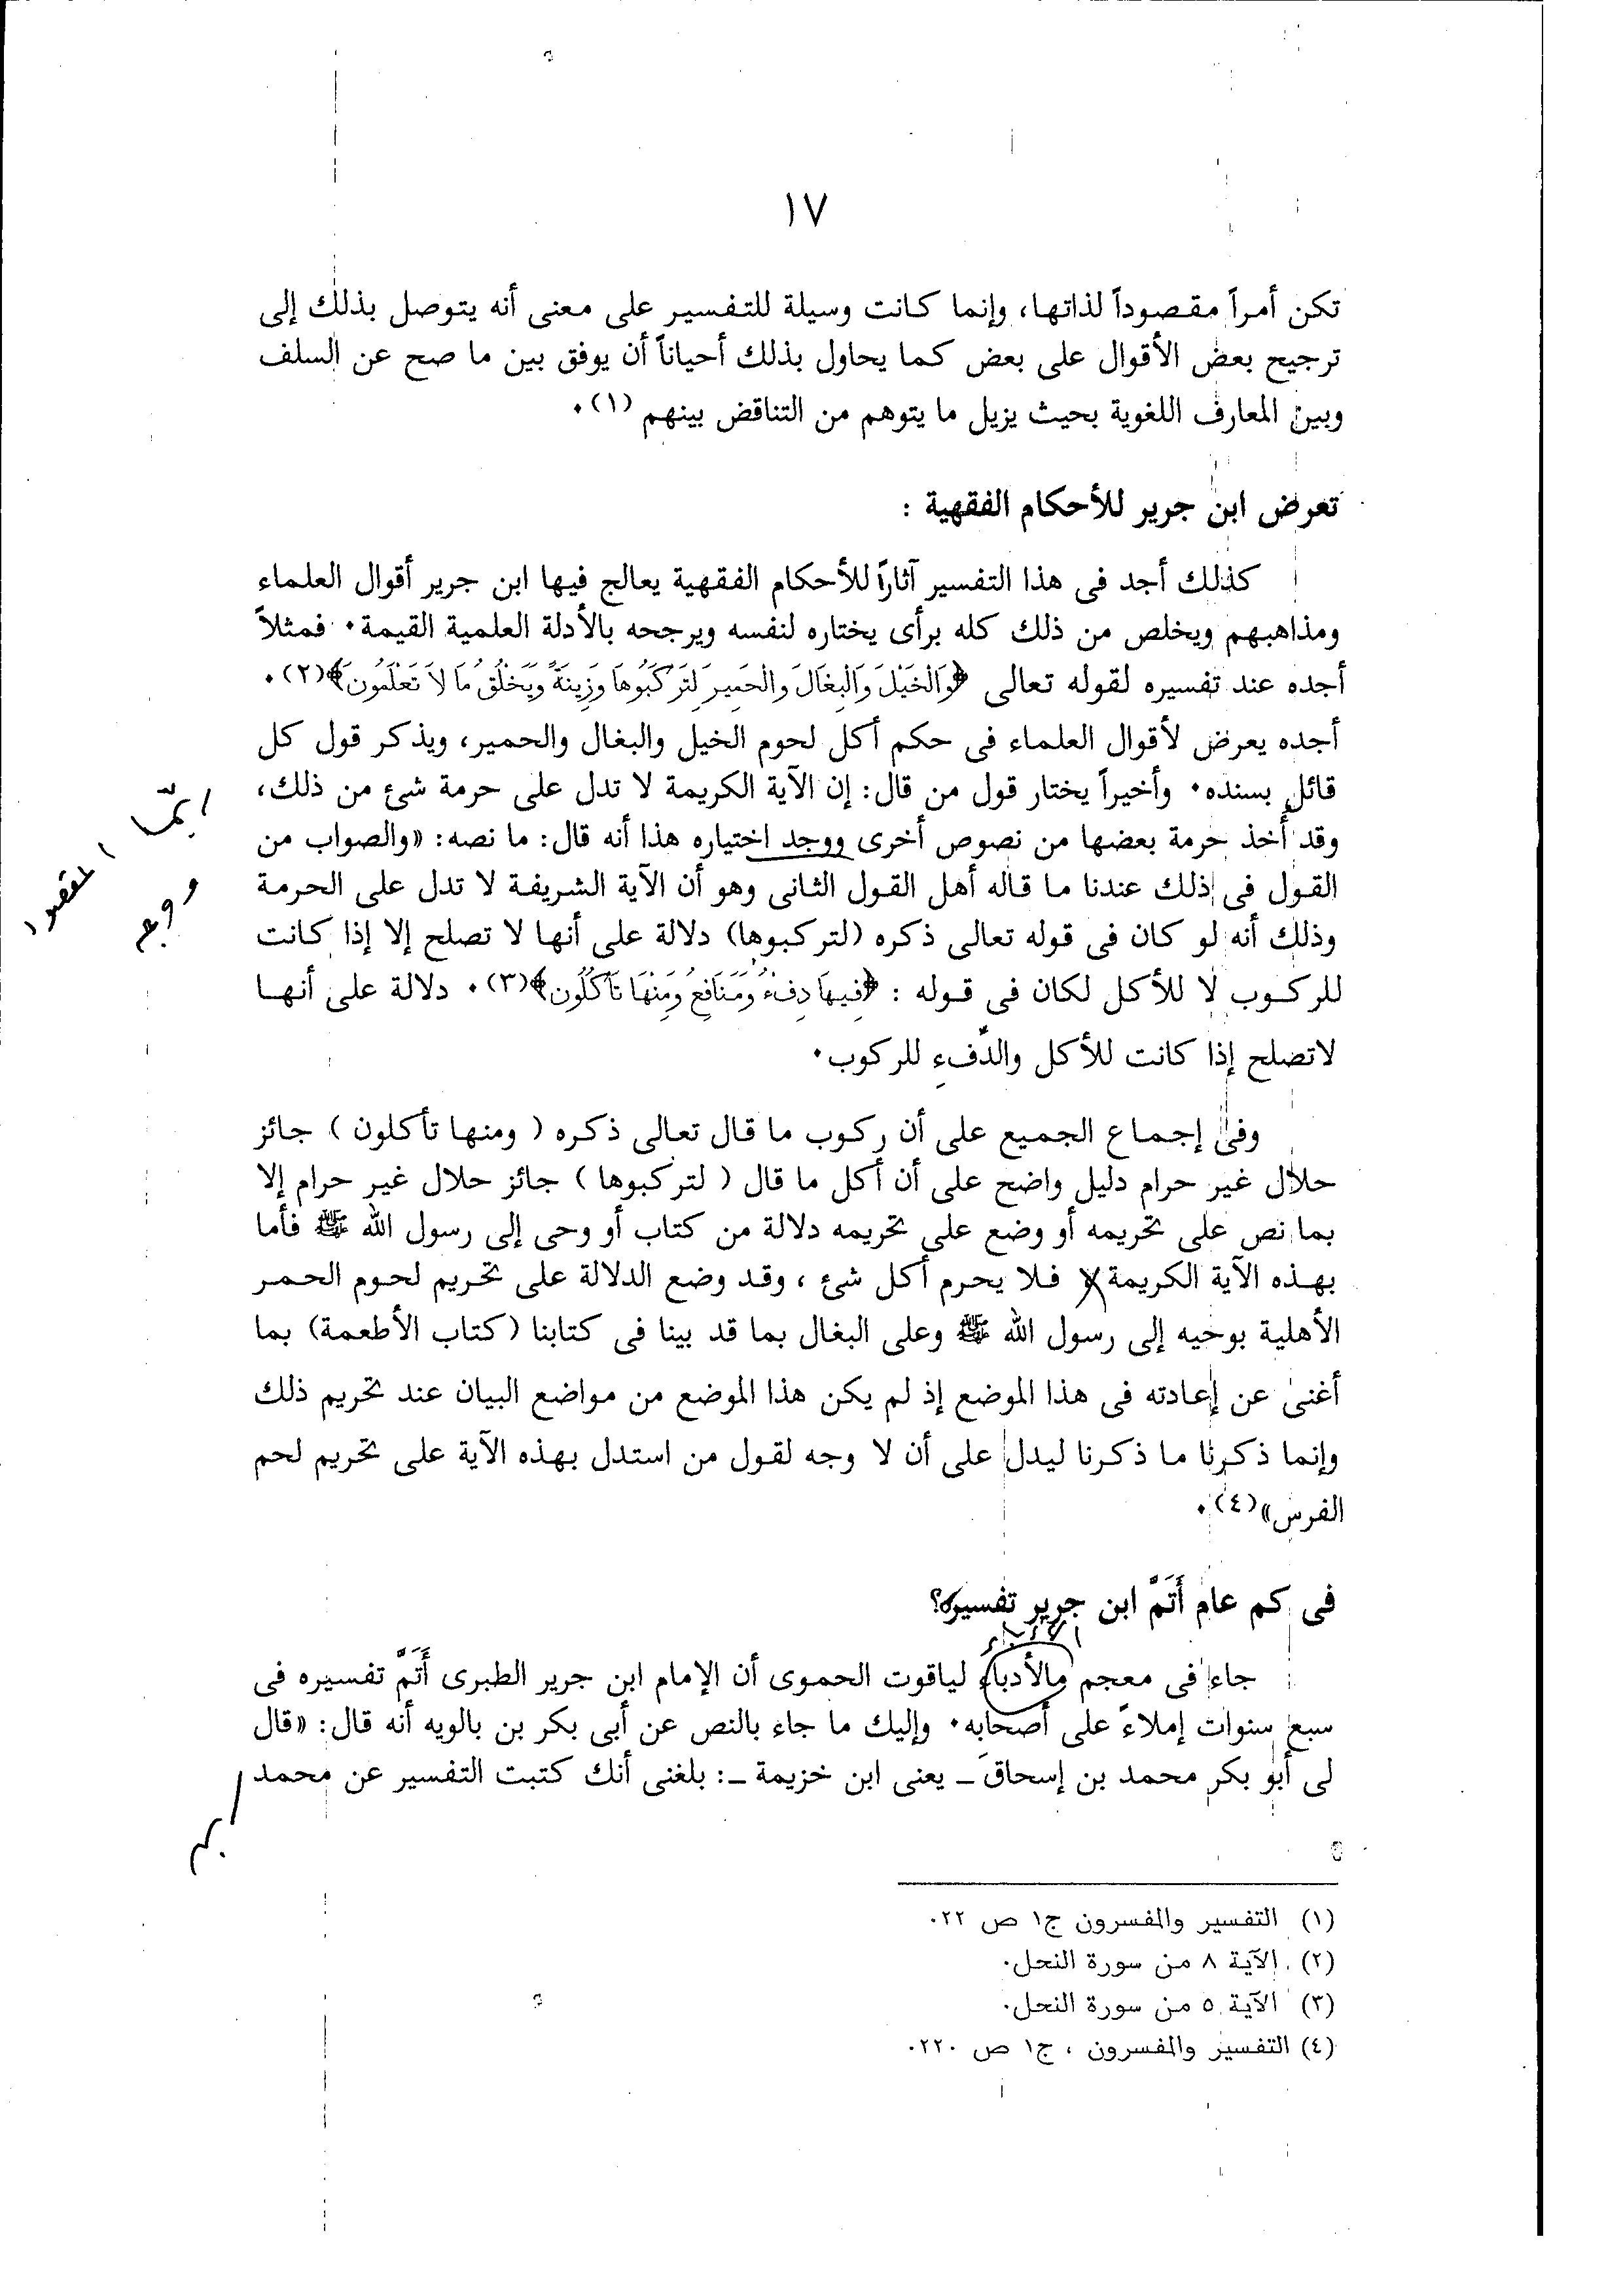 ١٧
تكن أمراً مقصوداً لذاتها، وإنما كانت وسيلة للتفسير على معنى أنه يتوصل بذلك إلى
ترجيح بعض الأقوال على بعض كما يحاول بذلك أحياناً أن يوفق بين ما صح عن السلف
وبين المعارف اللغوية بحيث يزيل ما يتوهم من التناقض بينهم (١).
تعرض ابن جرير للأحكام الفقهية :
كذلك أجد فى هذا التفسير آثاراً للأحكام الفقهية يعالج فيها ابن جرير أقوال العلماء
ومذاهبهم ويخلص من ذلك كله برأى يختاره لنفسه ويرجحه بالأدلة العلمية القيمة. فمثلاً
أجده عند تفسيره لقوله تعالى ﴿وَالْخَيْلَ وَالْبِغَالَ وَالْحَمِيرَ لِتَرْكَبُوهَا وَزِينَةً وَيَخْلُقُ مَا لاَ تَعْلَمُونَ﴾(٢).
أجده يعرض لأقوال العلماء فى حكم أكل لحوم الخيل والبغال والحمير، ويذكر قول كل
قائل بسنده. وأخيراً يختار قول من قال: إن الآية الكريمة لا تدل على حرمة شئ من ذلك،
وقد أخذ حرمة بعضها من نصوص أخرى ووجد اختياره هذا أنه قال: ما نصه: «والصواب من
القول فى ذلك عندنا ما قاله أهل القول الثانى وهو أن الآية الشريفة لا تدل على الحرمة
وذلك أنه لو كان فى قوله تعالى ذكره (لتركبوها) دلالة على أنها لا تصلح إلا إذا كانت
للركوب لا للأكل لكان فى قوله : ﴿فِيهَا دِفْءٌ وَمَنَافِعُ وَمِنْهَا تَأْكُلُونَ﴾(٣). دلالة على أنها
لاتصلح إذا كانت للأكل والدِّفءِ للركوب.
وفى إجماع الجميع على أن ركوب ما قال تعالى ذكره ( ومنها تأكلون ) جائز
حلال غير حرام دليل واضح على أن أكل ما قال ( لتركبوها ) جائز حلال غير حرام إلا
بما نص على تحريمه أو وضع على تحريمه دلالة من كتاب أو وحى إلى رسول الله ﷺ فأما
بهذه الآية الكريمة لا فلا يحرم أكل شئ ، وقد وضع الدلالة على تحريم لحوم الحمر
الأهلية بوحيه إلى رسول الله ﷺ وعلى البغال بما قد بينا فى كتابنا (كتاب الأطعمة) بما
أغنى عن إعادته فى هذا الموضع إذ لم يكن هذا الموضع من مواضع البيان عند تحريم ذلك
وإنما ذكرنا ما ذكرنا ليدل على أن لا وجه لقول من استدل بهذه الآية على تحريم لحم
الفرس»(٤).
فى كم عام أَتَمَّ ابن جرير تفسيره؟
الأدباء
جاء فى معجم مالأدباء لياقوت الحموى أن الإمام ابن جرير الطبرى أَتَمَّ تفسيره فى
سبع سنوات إملاءً على أصحابه. وإليك ما جاء بالنص عن أبى بكر بن بالويه أنه قال: «قال
لى أبو بكر محمد بن إسحاق ــ يعنى ابن خزيمة ــ: بلغنى أنك كتبت التفسير عن محمد
(١) التفسير والمفسرون ج١ ص ٢٢٠
(٢) الآية ٨ من سورة النحل.
(٣) الآية ٥ من سورة النحل.
(٤) التفسير والمفسرون ، ج١ ص ٢٢٠.